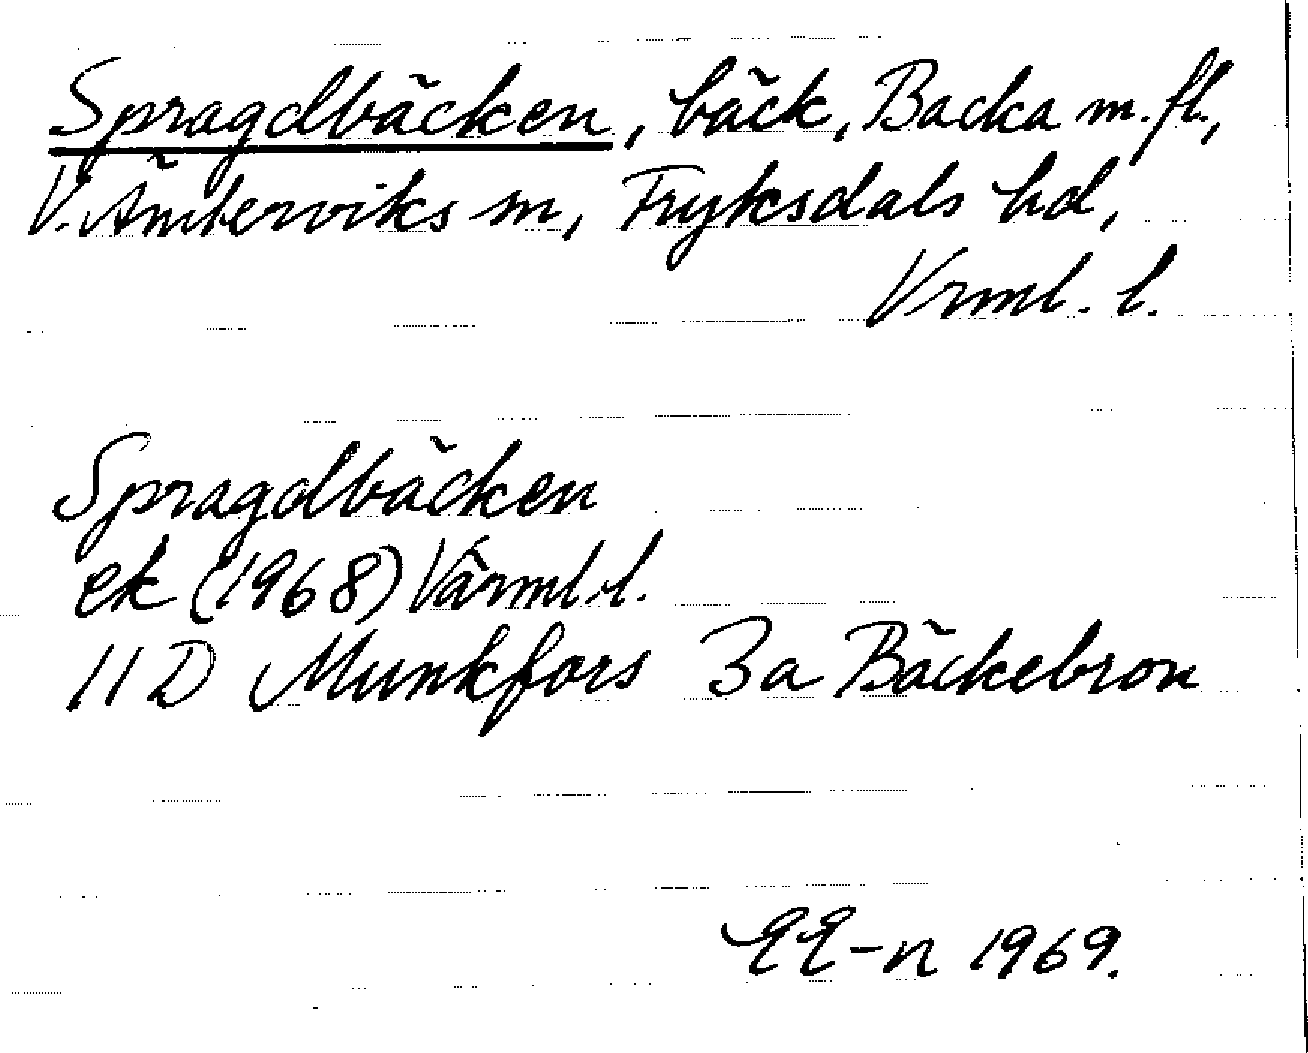 Spragdbäcken, bäck, Backa m.fl.,
V. Ämterviks sn, Fryksdals hd,
Vrml. l.
Spragdbäcken
ek (1968) Värml. l.
11D Munkfors 3a Bäckebron
EE-n 1969.